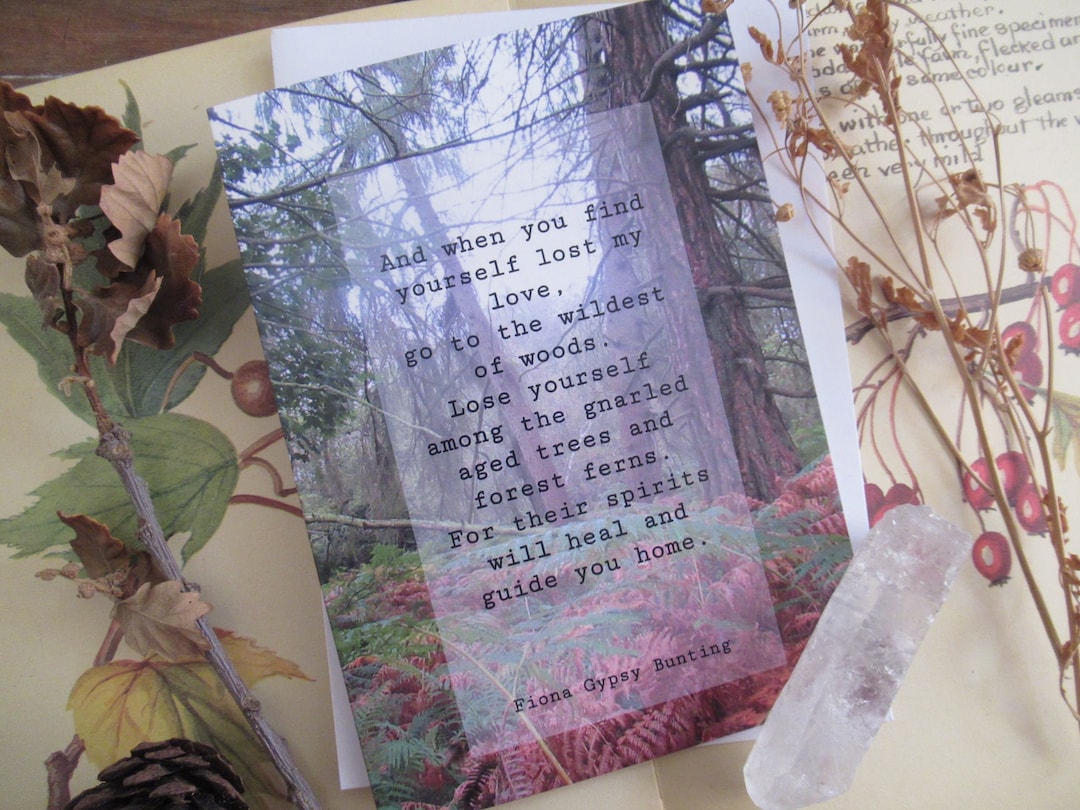 And when you find
yourself lost my
love,
go to the wildest
of woods.
Lose yourself
among the gnarled
aged trees and
forest ferns.
For their spirits
will heal and
guide you home.
Fiona Gypsy Bunting
weather.
fine specimen
flecked and
same colour.
with one or two gleams
throughout the
very mild